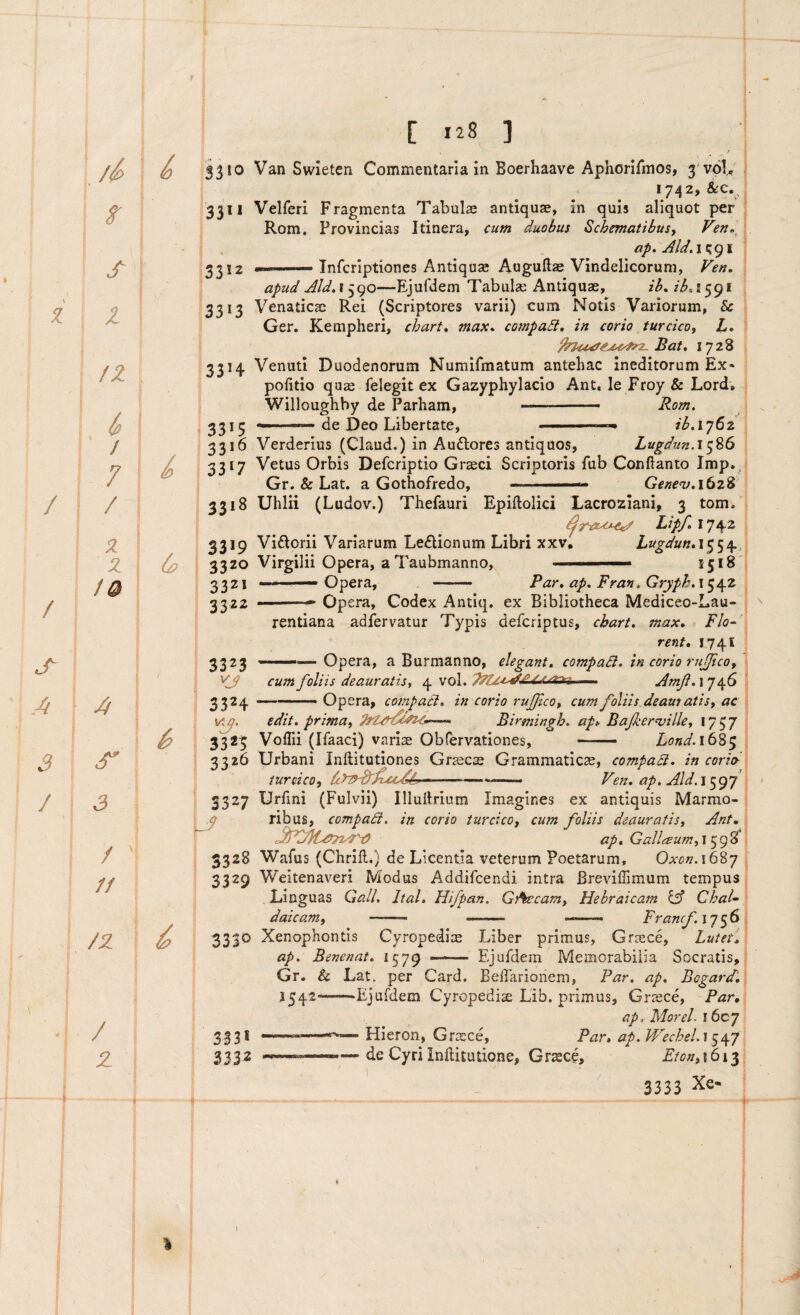 [ 128 ]
16 6 3310 Van Swieten Commentaria in Boerhaave Aphorifmos, 3 vol.
1742, &c.
8 3311 Velferi Fragmenta Tabulæ antiquæ, in quis aliquot per
Rom. Provincias Itinera, cum duobus Schematibus, Ven.
ap. Ald. 1591
5 3312 ——— Infcriptiones Antiquæ Auguftæ Vindelicorum, Ven.
apud Ald. 1590—Ejufdem Tabulæ Antiquæ, ib. ib. 1591
2 2 3313 Venaticæ Rei (Scriptores varii) cum Notis Variorum, &
Ger. Kempheri, chart. max. compact. in corio turcico, L.
Bat. 1728
12 3314 Venuti Duodenorum Numifmatum antehac ineditorum Ex-
pofitio quæ felegit ex Gazyphylacio Ant. le Froy & Lord.
Willoughby de Parham, ——— Rom.
6 3315 ——— de Deo Libertate, ——— ib. 1762
1 3316 Verderius (Claud.) in Auctores antiquos, Lugdun. 1586
7 6 3317 Vetus Orbis Defcriptio Græci Scriptoris fub Conftanto Imp.
Gr. & Lat. a Gothofredo, ——— Genev. 1628
1 1 3318 Uhlii (Ludov.) Thefauri Epiftolici Lacroziani, 3 tom.
Lipf. 1742
2 3319 Victorii Variarum Lectionum Libri xxv. Lugdun. 1554
2 6 3320 Virgilii Opera, a Taubmanno, ——— 1518
10 3321 ——— Opera, —— Par. ap. Fran. Gryph. 1542
1 3322 ——— Opera, Codex Antiq. ex Bibliotheca Mediceo-Lau-
rentiana adfervatur Typis defcriptus, chart. max. Flo-
rent. 1741
5 3323 ——— Opera, a Burmanno, elegant. compact. in corio ruffico,
cum foliis deauratis, 4 vol. Amft. 1746
4 4 3324 ——— Opera, compact. in corio ruffico, cum foliis deauratis, ac
edit. prima, —— Birmingh. ap. Bafkerville, 1757
6 3325 Voffii (Ifaaci) variæ Obfervationes, —— Lond. 1685
3 5 3326 Urbani Inftitutiones Græcæ Grammaticæ, compact. in corio
turcico, ——— Ven. ap. Ald. 1597
1 3 3327 Urfini (Fulvii) Illuftrium Imagines ex antiquis Marmo-
ribus, compact. in corio turcico, cum foliis deauratis, Ant.
ap. Gallæum, 1598
1 3328 Wafus (Chrift.) de Licentia veterum Poetarum, Oxon. 1687
11 3329 Weitenaveri Modus Addifcendi intra Breviffimum tempus
Linguas Gall. Ital. Hifpan. Græcam, Hebraicam & Chal-
daicam, —— —— —— Francf. 1756
12 6 3330 Xenophontis Cyropediæ Liber primus, Græcè, Lutet.
ap. Benenat. 1579 —— Ejufdem Memorabilia Socratis,
Gr. & Lat. per Card. Beffarionem, Par. ap. Bogard.
1542——Ejufdem Cyropediæ Lib. primus, Græcè, Par.
ap. Morel. 1607
1 3331 ——— Hieron, Græcè, Par. ap. Wechel. 1547
2 3332 ——— de Cyri Inftitutione, Græcè, Eton, 1613
3333 Xe-